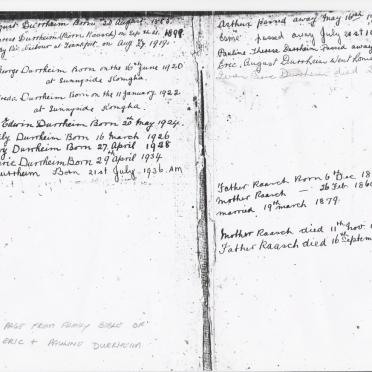 August Durrheim Born 22 August 1885.
Durrheim (Born Raasch) on Sep 1898
by Dr. at Transport, on Aug 27 1919.
George Durrheim Born on the 16th June 1920
at Sunnyside Komgha.
Durrheim Born on the 11 January 1922
at Sunnyside Komgha.
Edwin Durrheim Born 20th May 1924.
Durrheim Born 16 March 1926
Durrheim Born 27th April 1928
Eric Durrheim Born 29th April 1934
Durrheim Born 21st July 1936. AM
PAGE FROM FAMILY BIBLE OF
ERIC + PAULINE DURRHEIM
Arthur passed away May 16th
Esmé passed away July 21st
Pauline Therese Durrheim passed away
Eric, August Durrheim went home
Durrheim died
Father Raasch Born 6th Dec 18
Mother Raasch — 26 Feb 186
married 19th march 1879.
Mother Raasch died 11th Nov. 1
Father Raasch died 16th Septem